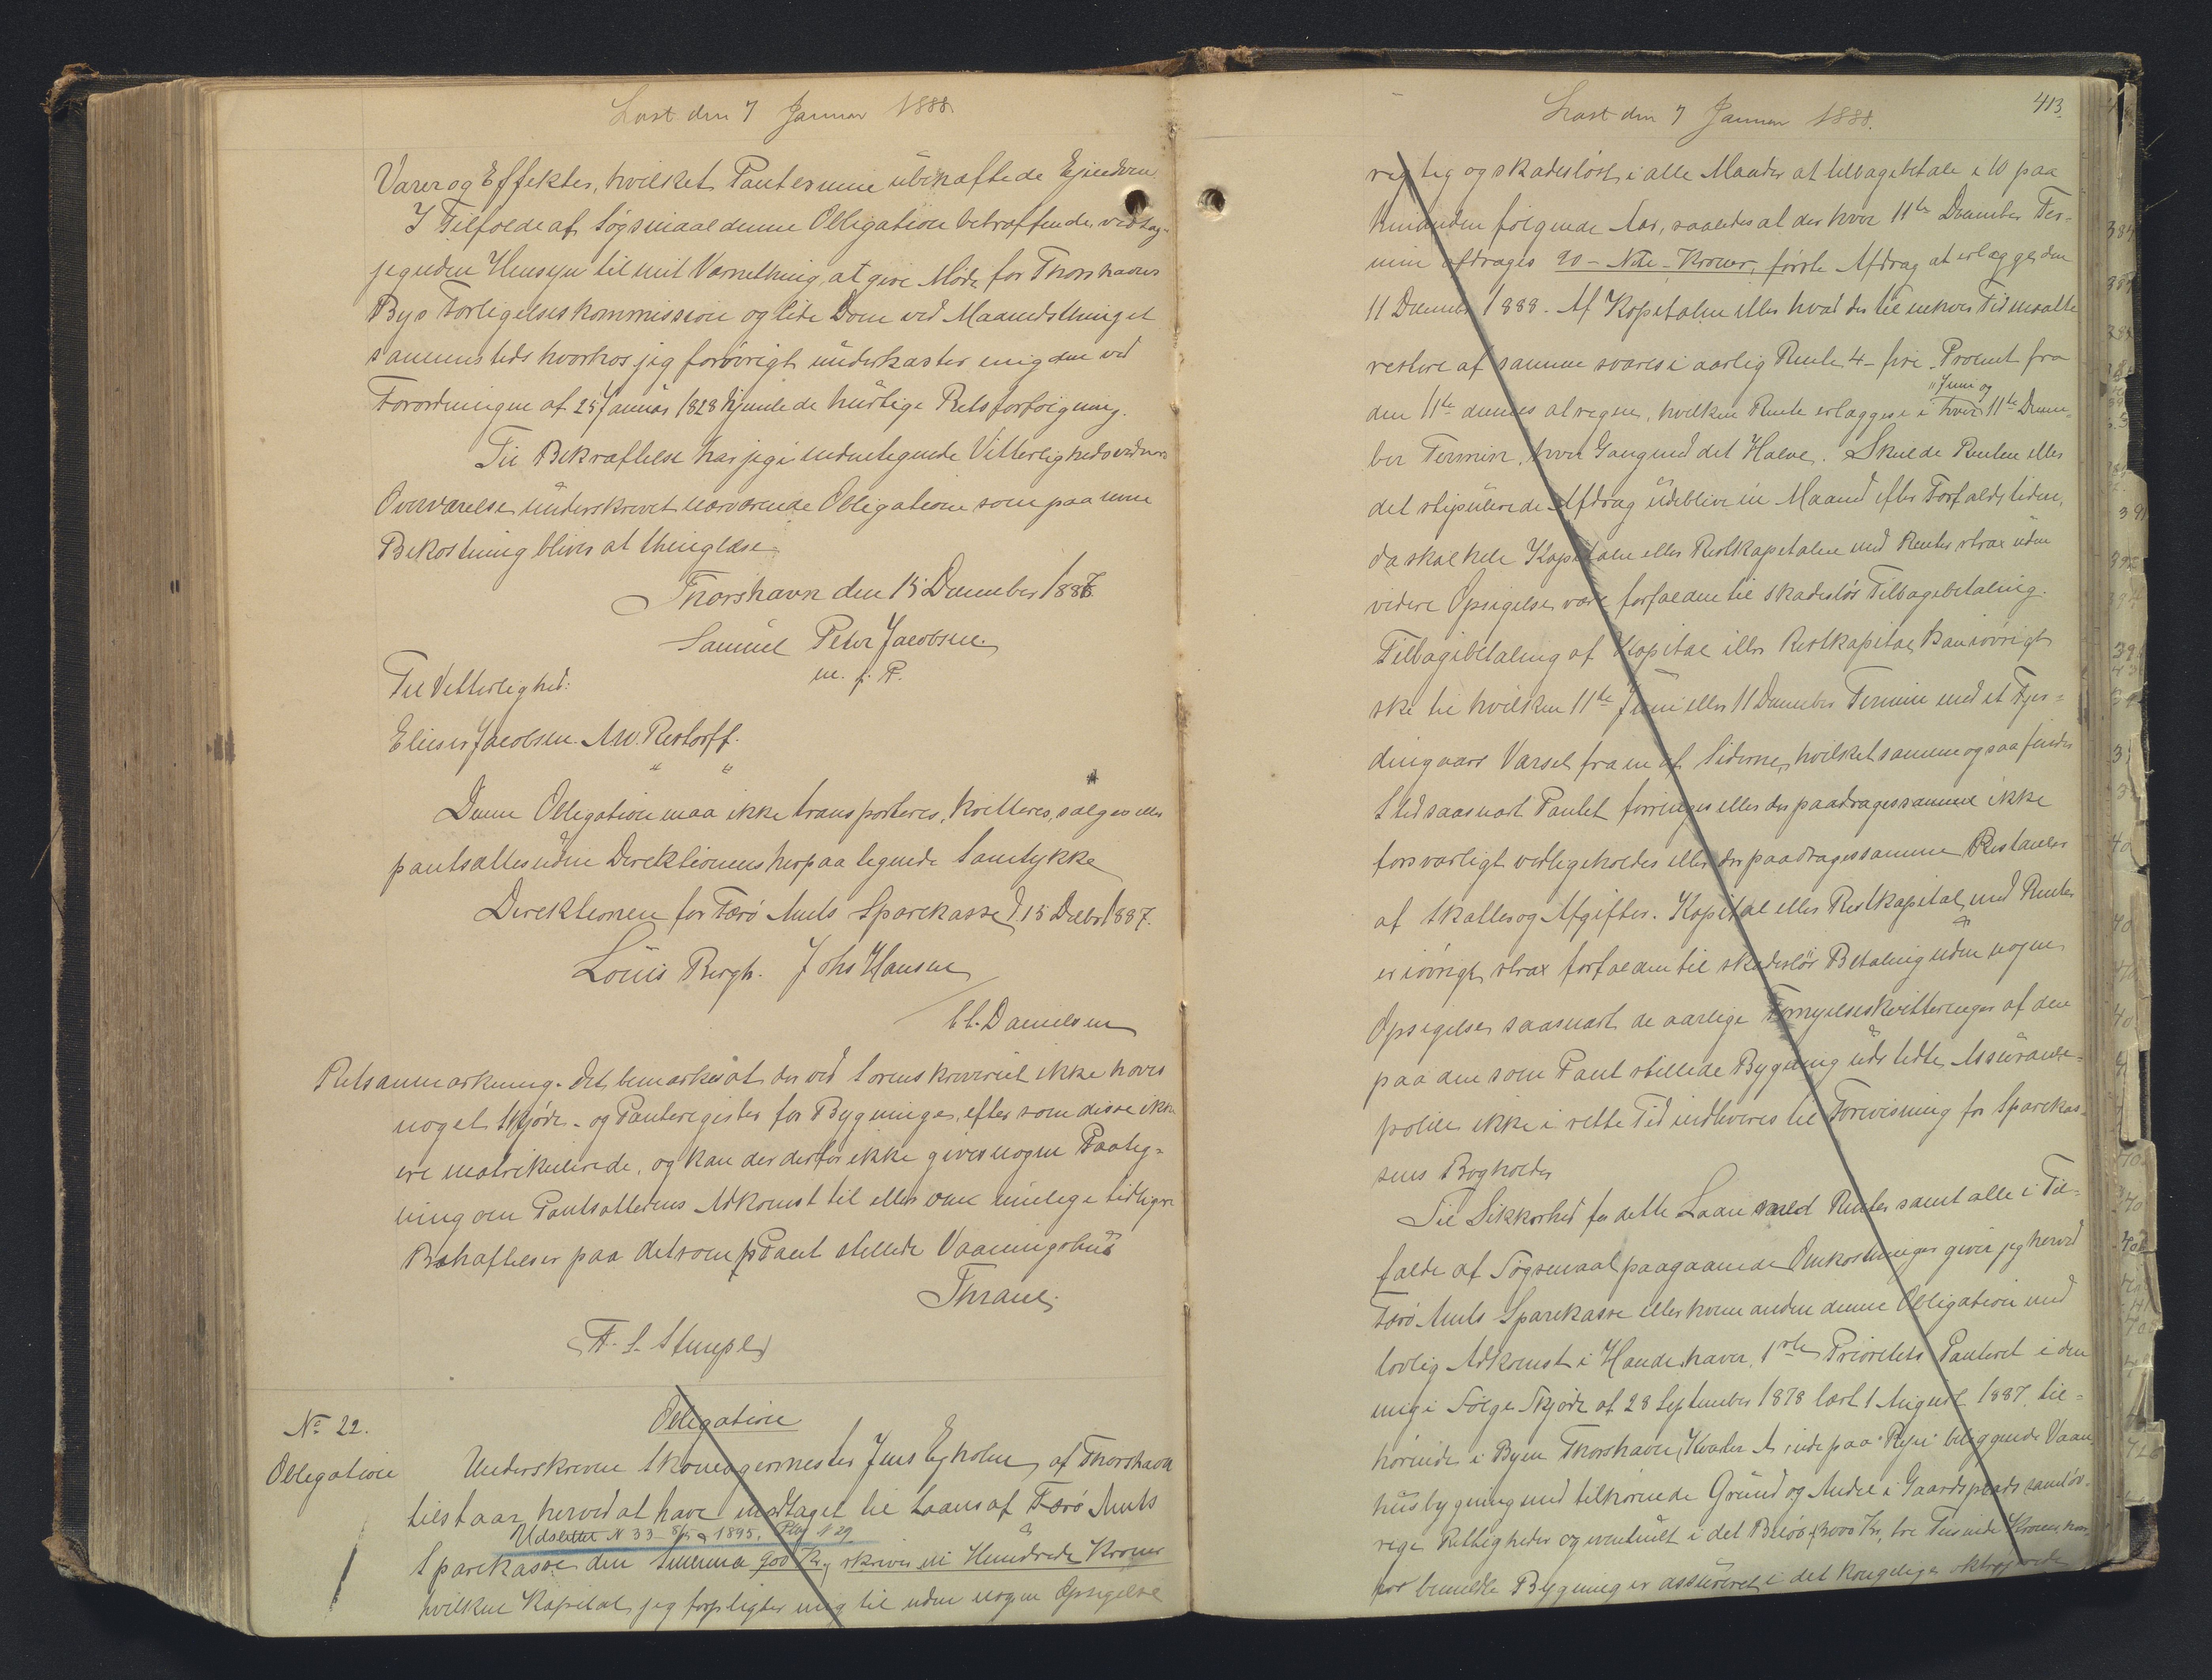 Læst den 7 Januar 1888.
Varer og Effekter, hvilket Pant er mine ubehæftede Ejendom.
I Tilfælde af Søgsmaal denne Obligation betræffende vedtag-
jeg uden Hensyn til mit Værnething, at give Møde for Thorshavns
Byes Forligelseskommission og lide Dom ved Maanedsthinget
sammesteds hvorhos jeg forøvrigt underkaster mig den ved
Forordningen af 25 Januar 1828 hjemlede hurtige Retsforfølgning.
Til Bekræftelse har jeg i undertegnede Vitterlighedsvidners
Overværelse underskrevet nærværende Obligation som paa min
Bekostning bliver at thinglæse.
Thorshavn den 15 December 1887
Samuel Peter Jacobsen
m. f. P.
Til Vitterlighed:
Elieser Jacobsen. M.W. Restorff.
Denne Obligation maa ikke transporteres, kvitteres, sælges eller
pantsættes uden Direktionens herpaa tegnede Samtykke
Direktionen for Færø Amts Sparekasse d. 15 Decbr 1887.
Louis Bergh. Johs Hansen
C.C. Danielsen
Retsanmærkning. Det bemærkes at der ved Sorenskriveriet ikke haves
noget Skjøde- og Panteregister for Bygninger, eftersom disse ikke
ere matrikulerede, og kan der derfor ikke gives nogen Paateg-
ning om Pantsætterens Adkomst til eller om mulige tidligere
Behæftelser paa det som Pant stillede Vaaningshus
Thrane.
(F. S. Stempel)
No 22.
Obligation
Obligation
Underskrevne Skomagermester Jens Ejholm af Thorshavn
tilstaar herved at have modtaget til Laans af Færø Amts
Udslettet N 33 1895. N 29
Sparekasse den Summa 900 Kr, skriver ni Hundrede Kroner
hvilken Kapital jeg forpligter mig til uden nogen Opsigelse
Læst den 7 Januar 1888.
413
rigtig og skadesløst i alle Maader at tilbagebetale i 10 paa
hinanden følgende Aar, saaledes at der hver 11te December Ter-
min afdrages 90 - Niti - Kroner, første Afdrag at erlægges den
11 December 1888. Af Kapitalen eller hvad der til enhver Tid maatte
restere af samme svares i aarlig Rente 4 - fire - Procent fra
"Juni og
den 11te dennes at regne, hvilken Rente erlægges i hver 11te Decem-
ber Termin, hver Gang med det Halve. Skulde Renten eller
det stipulerede Afdrag udeblive en Maaned efter Forfaldstiden,
da skal hele Kapitalen eller Restkapitalen med Renter strax uden
videre Opsigelse være forfalden til skadesløs Tilbagebetaling.
Tilbagebetaling af Kapital eller Restkapital kan iøvrigt
ske til hvilken 11te Juni eller 11 December Termin med et Fjer-
dingaars Varsel fra en af Siderne, hvilket samme ogsaa finder
Sted saasnart Pantet forringes eller der paadrages samme ikke
forsvarligt vedligeholdes eller der paadrages samme Restancer
af Skatter og Afgifter. Kapital eller Restkapital med Renter
er iøvrigt strax forfalden til skadesløs Betaling uden nogen
Opsigelse saasnart de aarlige Fornyelseskvitteringer af den
paa den som Pant stillede Bygning udstedte Assurance-
police ikke i rette Tid indleveres til Forevisning for Sparekas-
sens Bogholder
Til Sikkerhed for dette Laan med Renter samt alle i Til-
fælde af Søgsmaal paagaaende Omkostninger giver jeg herved
Færø Amts Sparekasse eller hvem anden denne Obligation med
lovlig Adkomst i Hænde haver, 1ste Prioritets Panteret i den
mig i Følge Skjøde af 28 September 1878 læst 1 August 1887, til-
hørende i Byen Thorshavn, Kvarter A inde paa "Reyn" beliggende Vaan-
husbygning med tilhørende Grund og Andel i Gaardsplads samt øv-
rige Rettigheder og eventuelt i det Beløb 3000 Kr, tre Tusinde Kroner, hvor-
for bemeldte Bygning er assureret i det kongelige oktrojerede